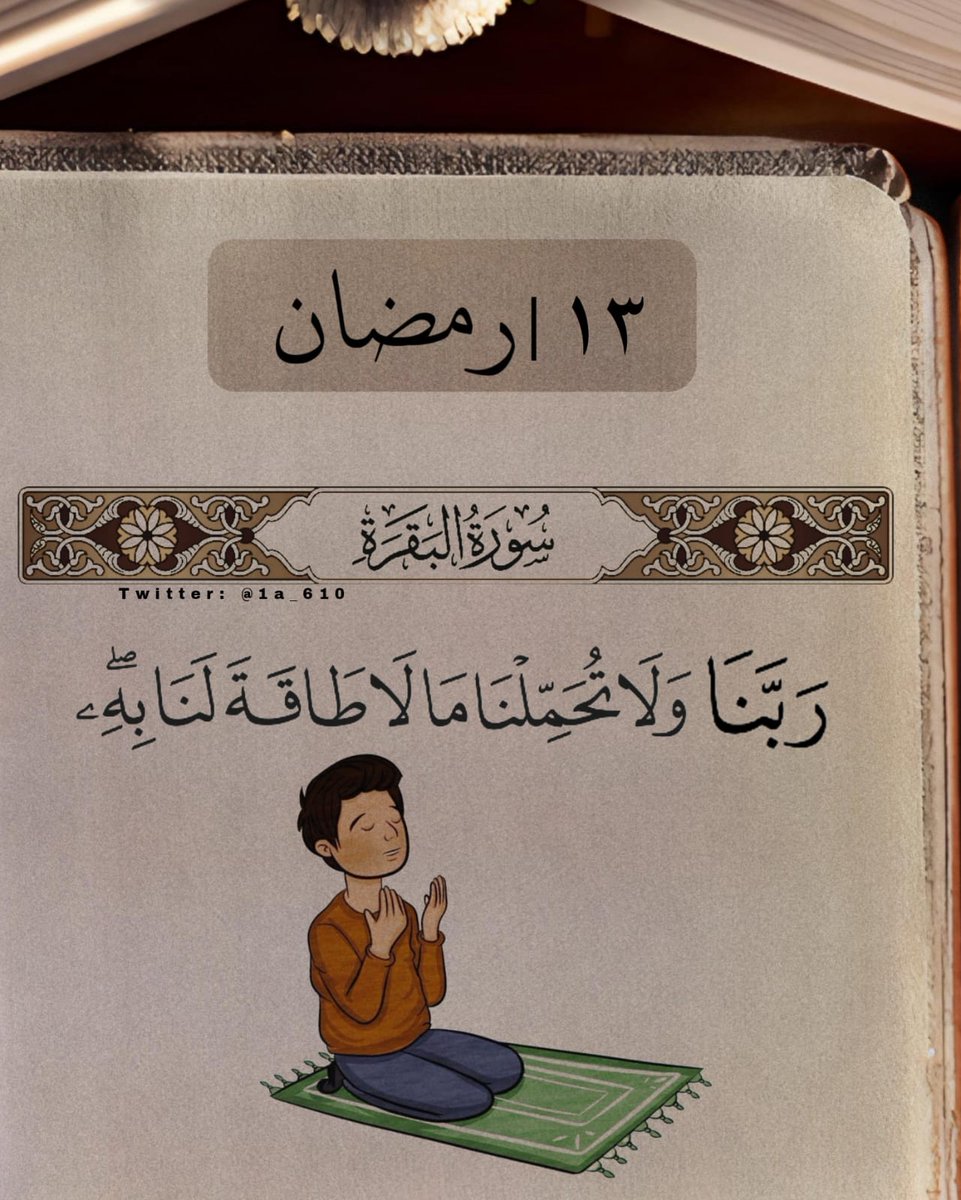 ١٣ | رمضان
سُورَةُ البَقَرَةِ
Twitter: @1a_610
رَبَّنَا وَلَا تُحَمِّلْنَا مَا لَا طَاقَةَ لَنَا بِهِۦۖ